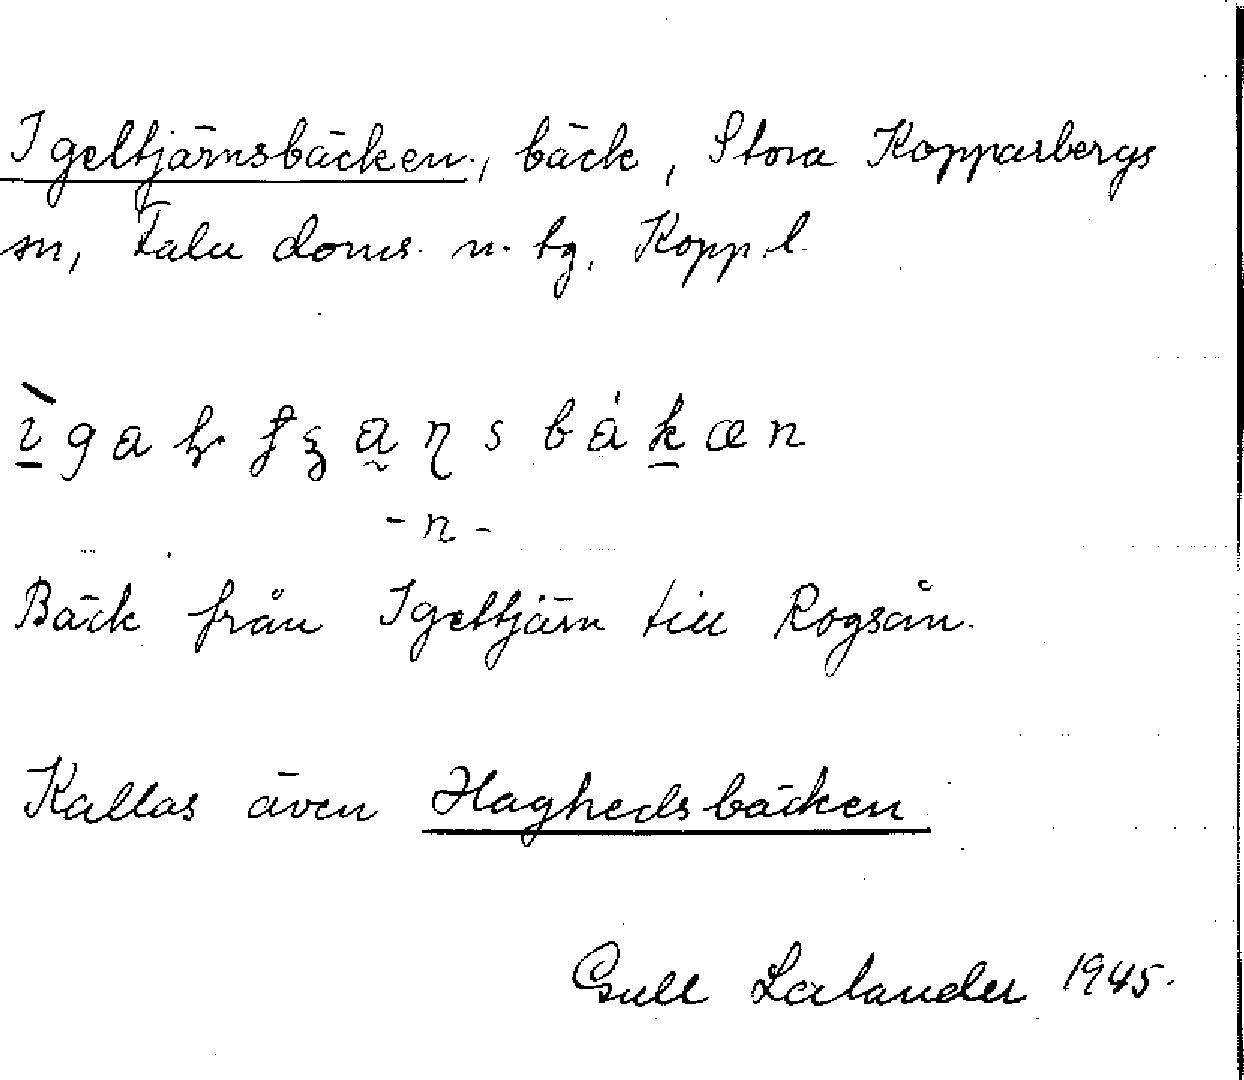 Igeltjärnsbäcken, bäck, Stora Kopparbergs
sn, Falu doms. n. tg, Kopp.l.
- n -
Bäck från Igeltjärn till Rogsån.
Kallas även Haghedsbäcken
Gull 1945.